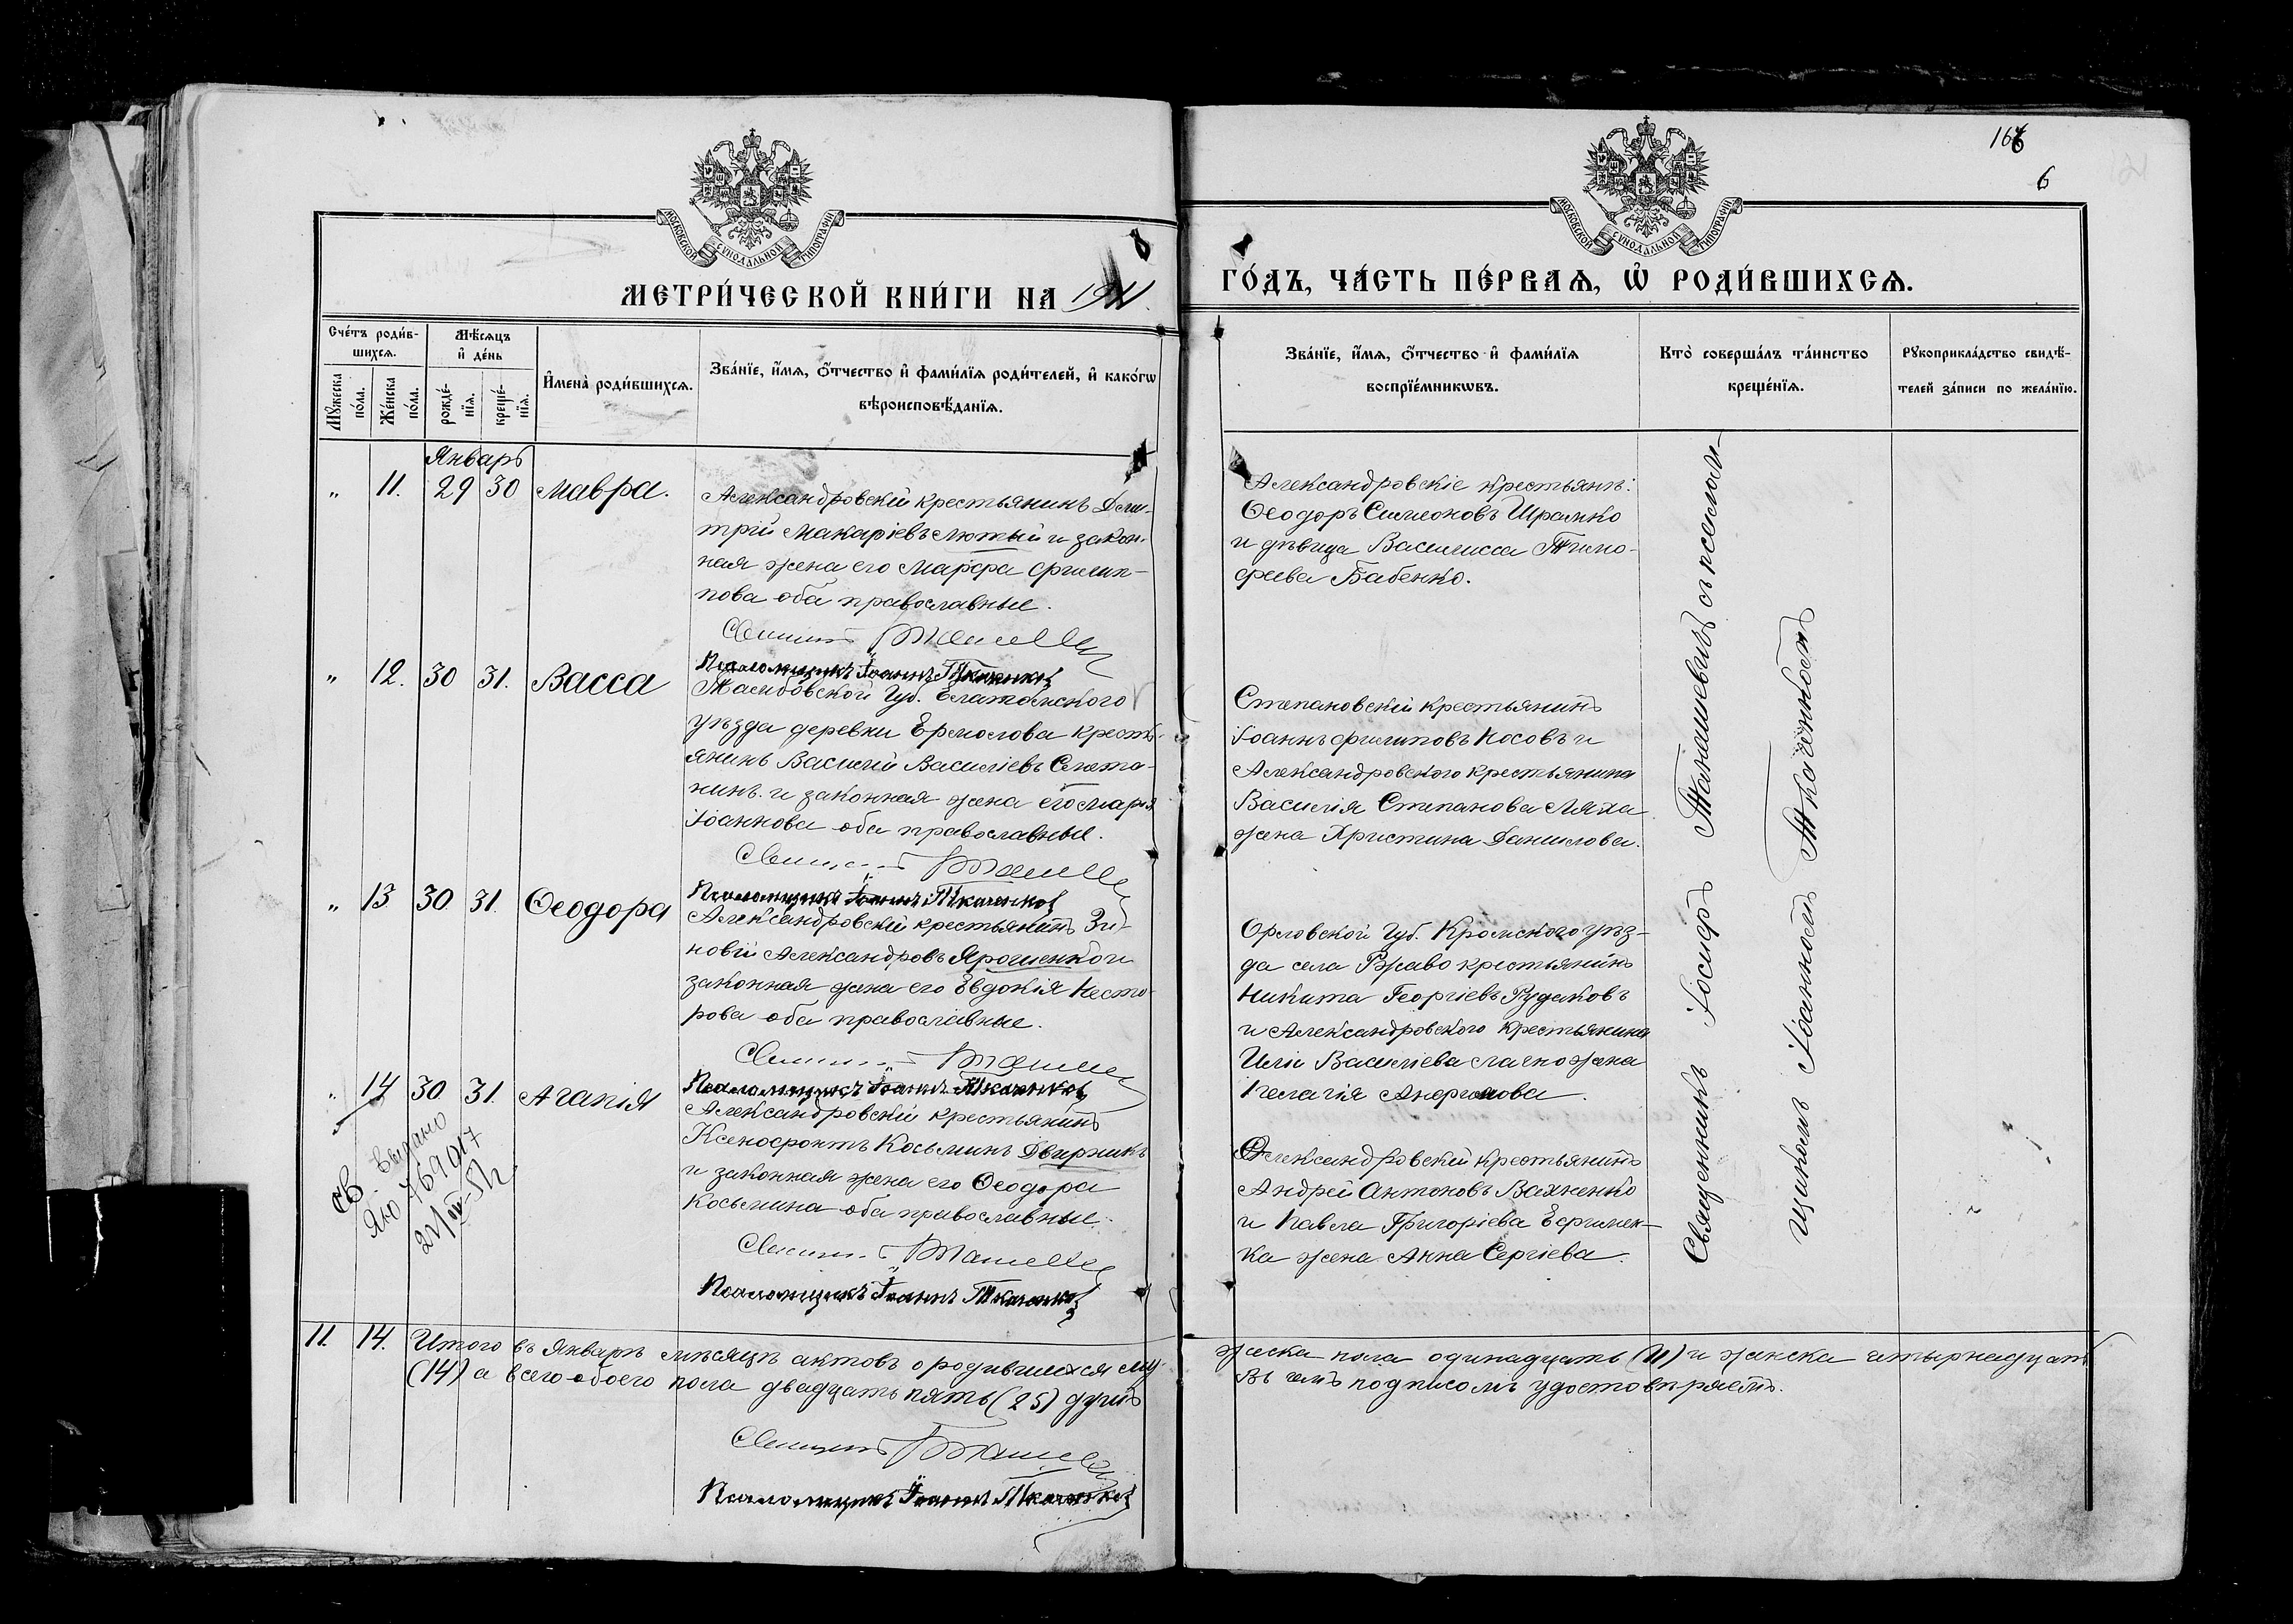 166
6
МОСКОВСКОЙ СѴНОДАЛЬНОЙ ТИПОГРАФІИ
МОСКОВСКОЙ СѴНОДАЛЬНОЙ ТИПОГРАФІИ
МЕТРИ́ЧЕСКОЙ КНИ́ГИ НА 1911
ГО́ДЪ, ЧА́СТЬ ПЕ́РВАѦ, Ѡ҆ РОДИ́ВШИХСѦ.
Сче́тъ роди́в-
шихсѧ.
Мꙋ́жеска по́ла.
Же́нска по́ла.
Мѣ́сѧцъ
и҆ де́нь
рожде́-
нїѧ.
креще́-
нїѧ.
И҆мена̀ роди́вшихсѧ.
Зва́нїе, и҆́мѧ, ѻ҆́тчество и҆ фами́лїѧ роди́телей, и҆ како́гѡ
вѣроисповѣ́данїѧ.
Зва́нїе, и҆́мѧ, ѻ҆́тчество и҆ фами́лїѧ
воспрїе́мникѡвъ.
Кто̀ соверша́лъ та́инство
креще́нїѧ.
Рꙋкоприкла́дство свидѣ́-
телей за́писи по жела́нїю.
Январь
„ 11. 29 30 Мавра.
Александровскій крестьянинъ Дми-
трій Макаріевъ Лютый и закон-
ная жена его Марѳа Филип-
пова оба православные.
Псаломщикъ Іоаннъ Ткаченковъ
Александровскіе крестьяне:
Ѳеодоръ Симеоновъ Шрамко
и дѣвица Василисса Тимо-
феева Бабенко.
„ 12. 30 31. Васса
Тамбовской Губ. Елатомского
уѣзда деревни Ермолова кресть-
янинъ Василій Василіевъ Смета-
нинъ и законная жена его Марія
Іоаннова оба православные.
Псаломщикъ Іоаннъ Ткаченковъ
Степановскій крестьянинъ
Іоаннъ Филиповъ Носовъ и
Александровского крестьянина
Василія Степанова Ляха
жена Христина Данилова.
„ 13 30 31. Ѳеодора
Александровскій крестьянинъ Зи-
новій Александровъ Ярошенко и
законная жена его Евдокія Несто-
рова оба православные.
Псаломщикъ Іоаннъ Ткаченковъ
Орловской Губ. Кромского уѣз-
да села Ржаво крестьянинъ
Никита Георгіевъ Рудаковъ
и Александровского крестьянина
Иліи Василіева жена
Пелагія
„ 14 30 31. Агапія
Александровскій крестьянинъ
Ксенофонтъ Косьминъ Дворникъ
и законная жена его Ѳеодора
Косьмина оба православные.
Псаломщикъ Іоаннъ Ткаченковъ
Александровскій крестьянинъ
Андрей Антоновъ Вахненко
и Павла Григоріева
жена Анна Сергіева.
Св. Выдано
ЯЮ 769017
Священникъ Іосифъ Танашевичъ съ псалом-
щикомъ Іоанномъ Ткаченковымъ
11. 14. Итого въ Январѣ мѣсяцѣ актовъ о родившихся му-
жеска пола одинадцать (11) и женска четырнадцать
(14) а всего обоего пола двадцать пять (25) душъ
въ чемъ подписомъ удостовѣряемъ.
Псаломщикъ Іоаннъ Ткаченковъ